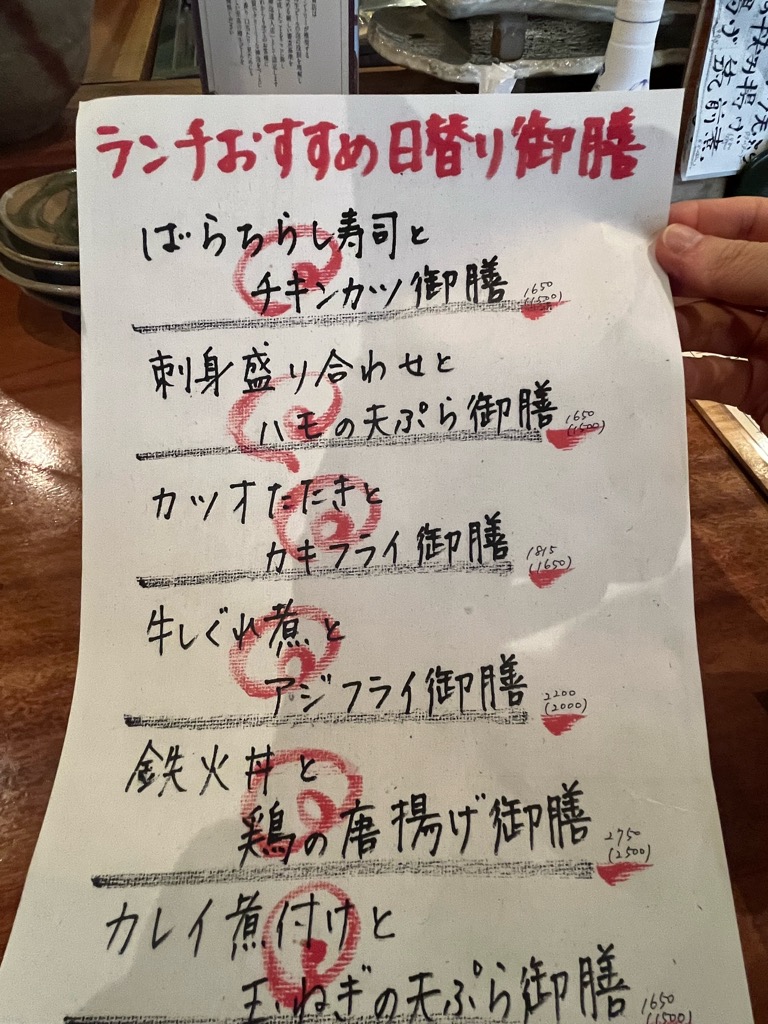 ランチおすすめ日替り御膳
ばらちらし寿司と
チキンカツ御膳 1650
(1500)
刺身盛り合わせと
ハモの天ぷら御膳 1650
(1500)
カツオたたきと
カキフライ御膳 1815
(1650)
牛しぐれ煮と
アジフライ御膳 2200
(2000)
鉄火丼と
鶏の唐揚げ御膳 2750
(2500)
カレイ煮付けと
玉ねぎの天ぷら御膳 1650
(1500)